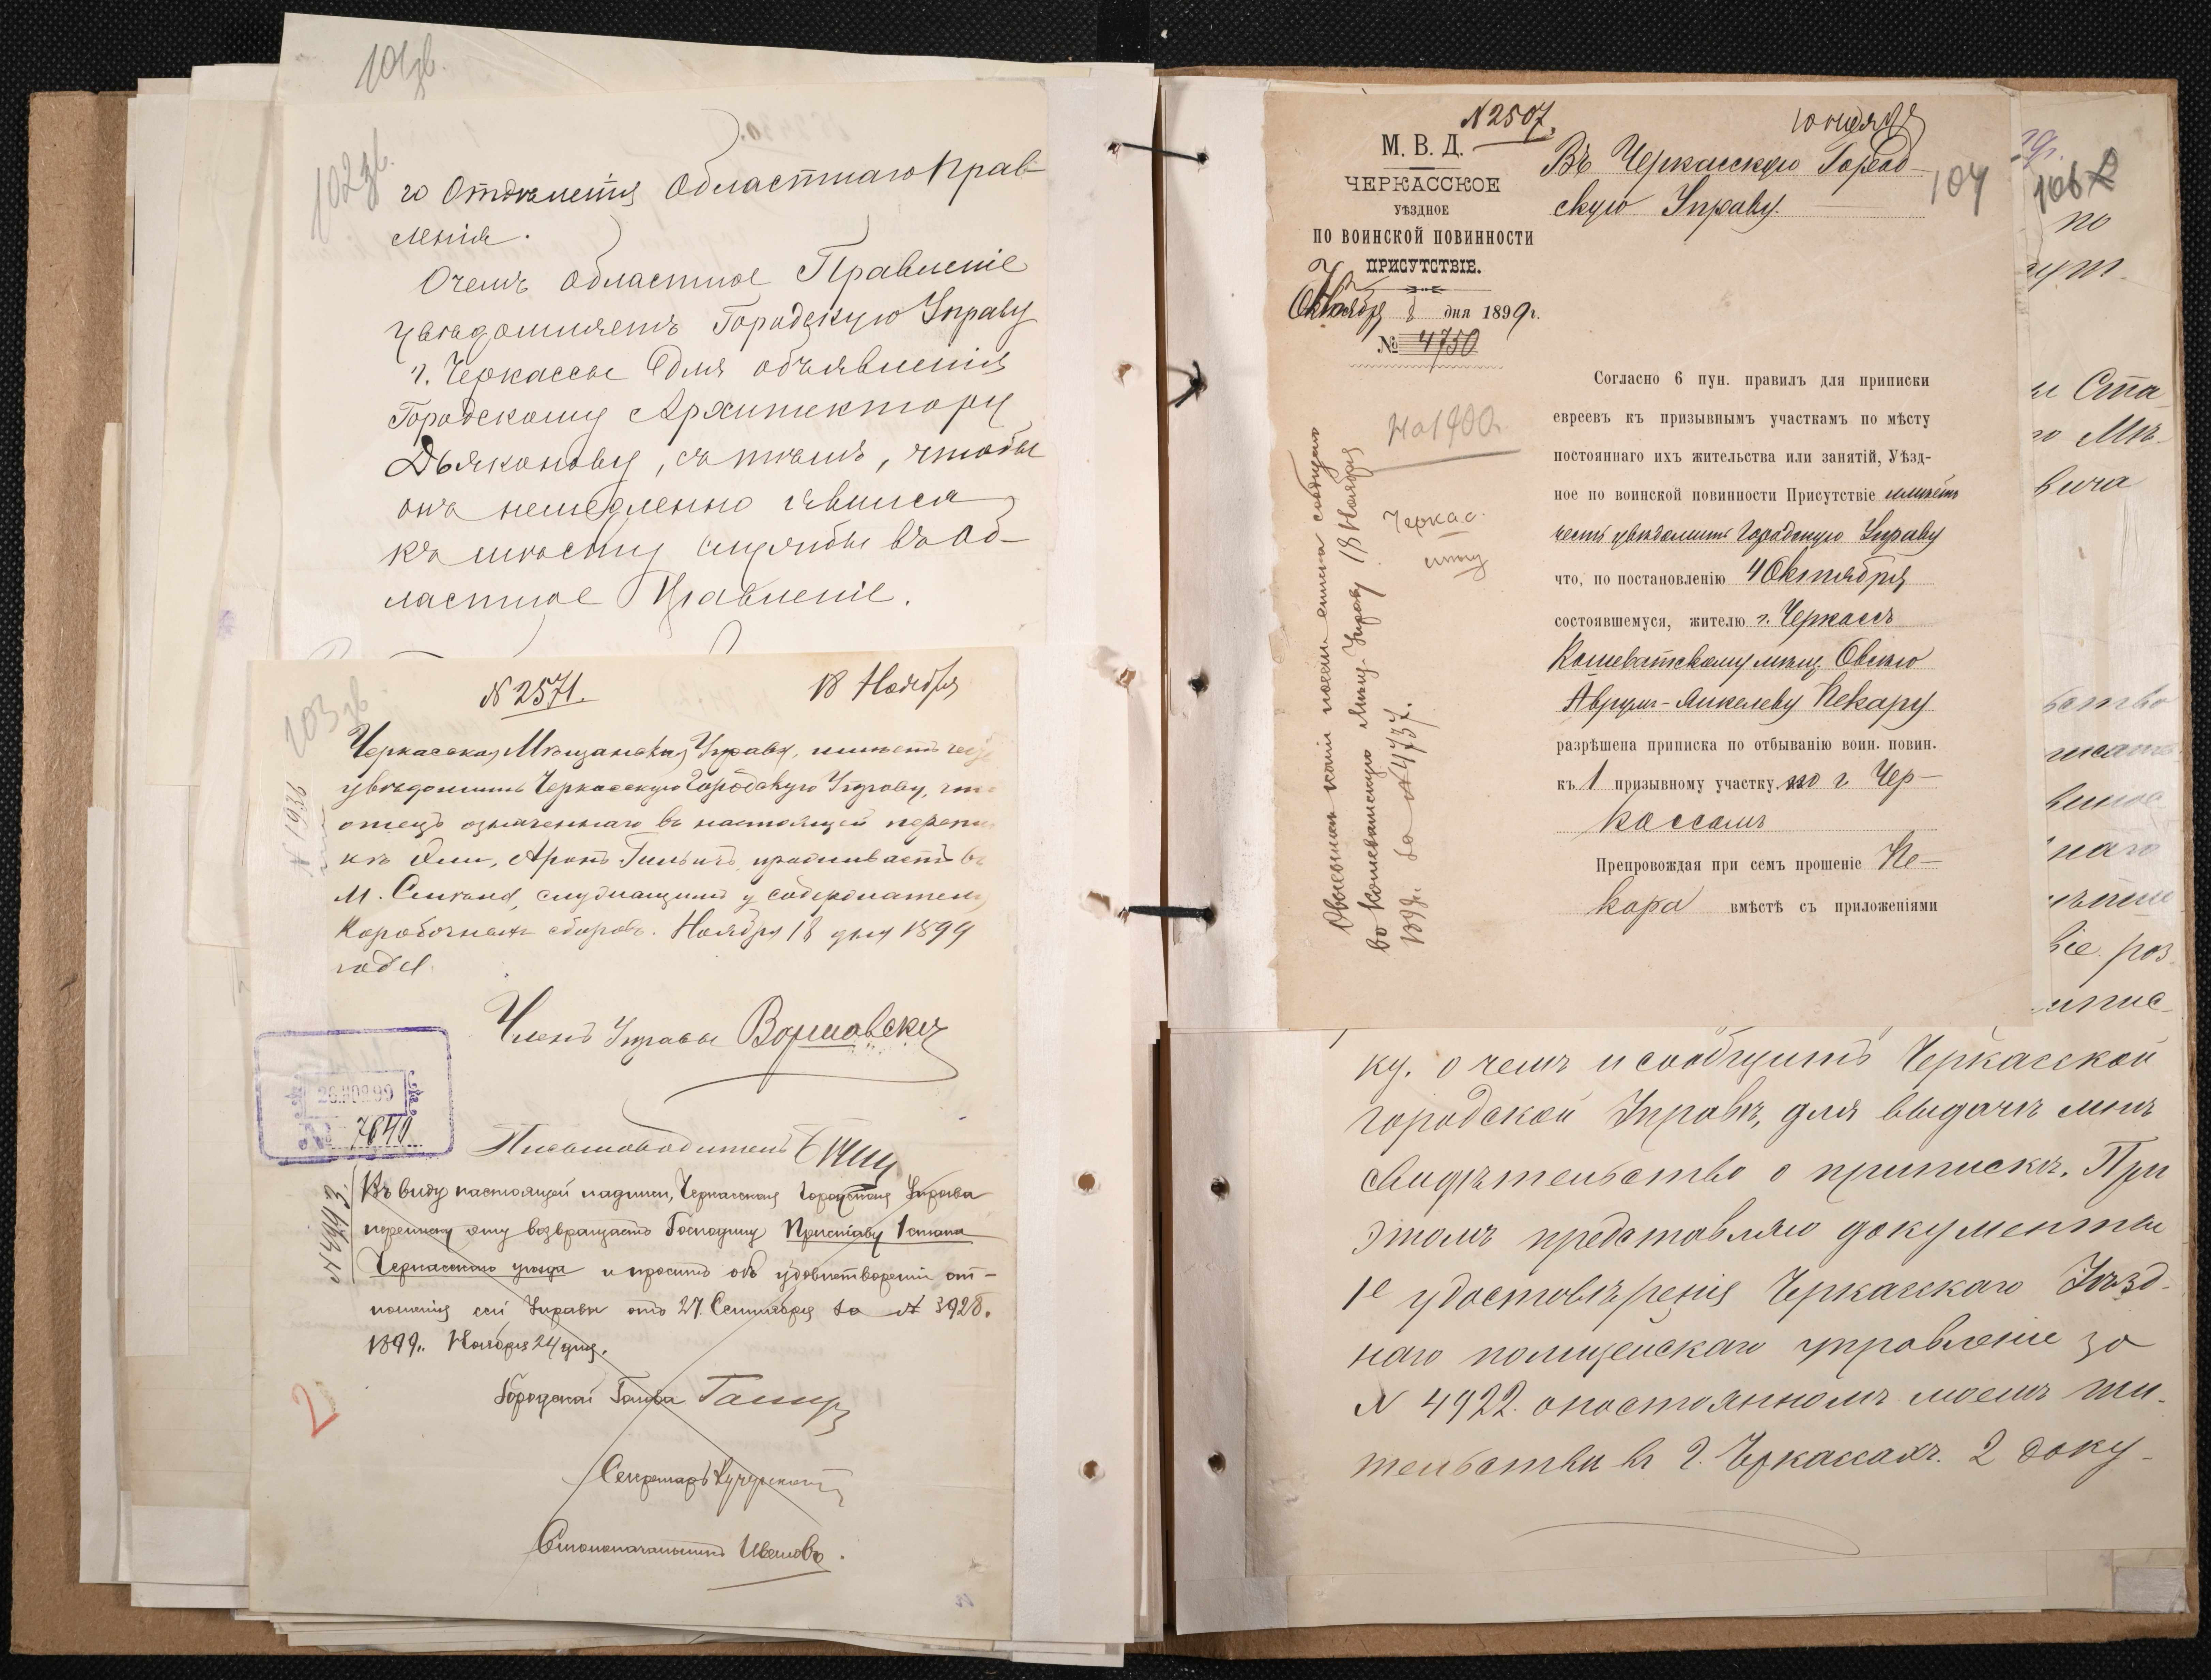 101зв.
102зв.
го Отдѣленія Областнаго Прав-
ленія.
О чемъ Областное Правленіе
увѣдомляетъ Городскую Управу
г. Черкассы для объявленія
Городскому Архитектору
Дьяконову, съ тѣмъ, чтобы
онъ немедленно явился
къ мѣсту службы въ Об-
ластное Правленіе.
103зв
№ 2571. 18 Ноября
№ 1936
Черкасская Мѣщанская Управа, имѣетъ
увѣдомить Черкасскую Городскую Управу,
отецъ означеннаго въ настоящей
Аронъ проживаетъ въ
м. Смѣла, служащимъ у содержателя
Коробочныхъ сборовъ. Ноября 18 дня 1899
года
Членъ Управы Воршавскій
26 НОЯ 99
№ 7640
Письмоводитель
№ 4993.
Въ виду настоящей надписи, Черкасская Городская Управа
переписку эту возвращаетъ Господину Приставу 1 стана
Черкасскаго уѣзда и проситъ объ удовлетвореніи от-
ношенія сей Управы отъ 27 Сентября за № 3928.
1899 г. Ноября 24 дня.
Городской Голова
Секретарь
Столоначальникъ Ивановъ.
2
№ 2507. 10 ноября
М. В. Д.
ЧЕРКАССКОЕ
УѢЗДНОЕ
ПО ВОИНСКОЙ ПОВИННОСТИ
ПРИСУТСТВІЕ.
Октября 8 дня 1899 г.
№ 4750
Въ Черкасскую Город-
скую Управу.
104
На 1900 г.
Черкас.
во Кошеватскую Мѣщ. Управу 18 Ноября
1899 г. за № 4737.
Согласно 6 пун. правилъ для приписки
евреевъ къ призывнымъ участкамъ по мѣсту
постояннаго ихъ жительства или занятій, Уѣзд-
ное по воинской повинности Присутствіе имѣетъ
честь увѣдомить Городскую Управу
что, по постановленію 4 Октября
состоявшемуся, жителю г. Черкассъ
Кошеватскому мѣщ. Овсію
Аврумъ-Янкелеву Пекару
разрѣшена приписка по отбыванію воин. повин.
къ 1 призывному участку по г Чер-
кассамъ
Препровождая при семъ прошеніе Пе-
кара вмѣстѣ съ приложеніями
ку. о чемъ и сообщитъ Черкасской
городской Управѣ, для выдачи мнѣ
свидѣтельство о припискѣ. При
этомъ представляю документы
1е удостовѣренія Черкасскаго Уѣзд-
наго полицейскаго управленіе за
№ 4922. о постоянномъ моемъ жи-
тельствѣ въ г. Черкассахъ. 2 доку-
106
по